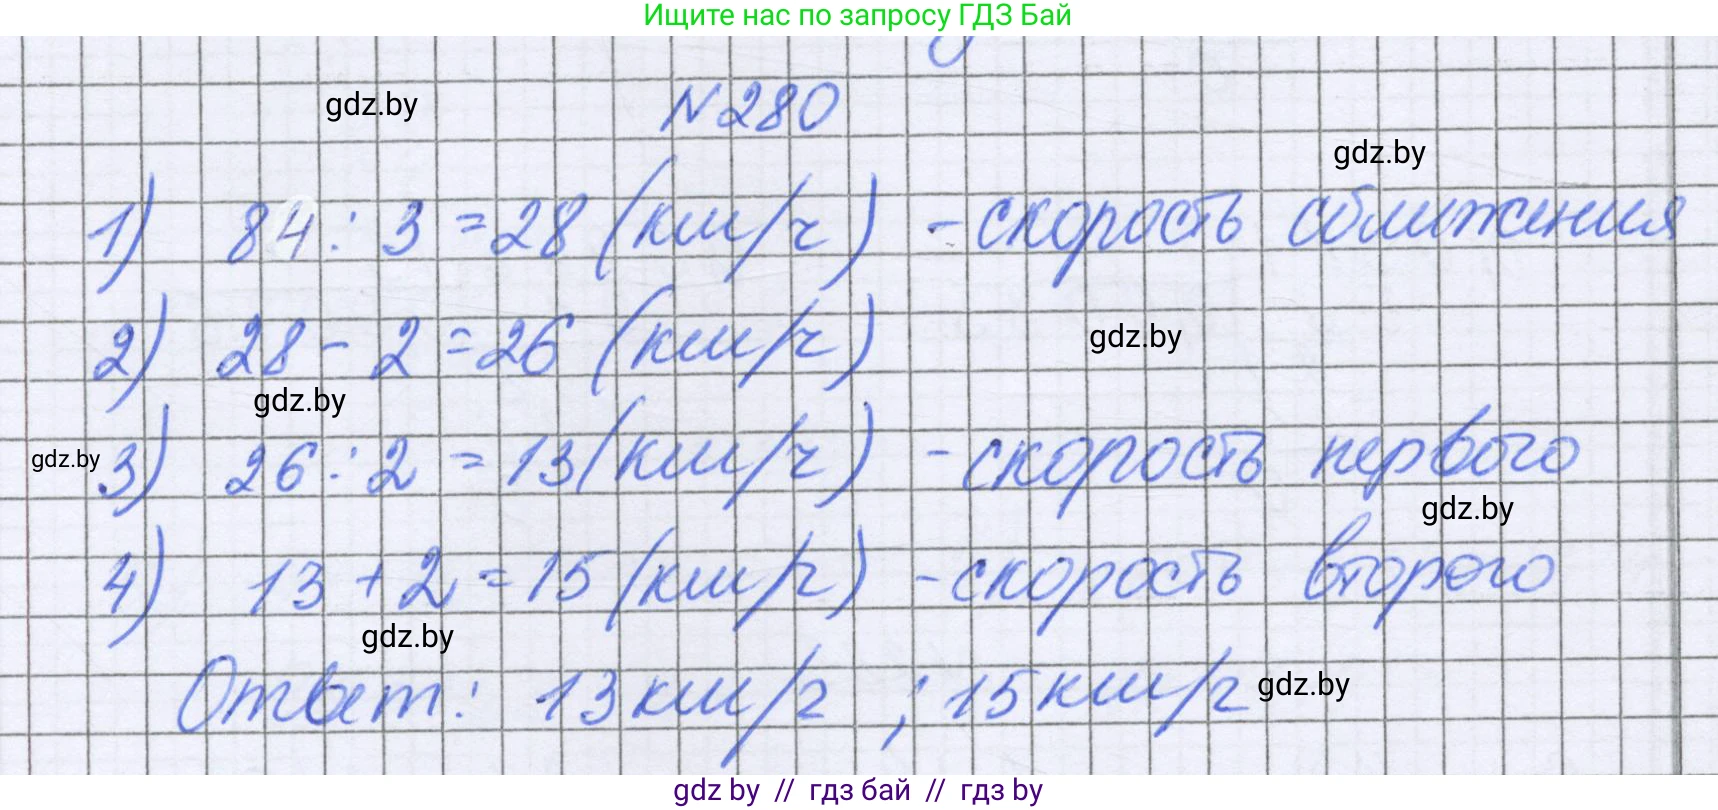 Ищите нас по запросу ГДЗ Бай
gdz.by
N280
gdz.by
1) 84 : 3 = 28 (км/ч) - скорость сближения
2) 28 - 2 = 26 (км/ч)
gdz.by
gdz.by
gdz.by 3) 26 : 2 = 13 (км/ч) - скорость первого
gdz.by
4) 13 + 2 = 15 (км/ч) - скорость второго
gdz.by
Ответ: 13 км/ч ; 15 км/ч gdz.by
gdz by // гдз бай // гдз by